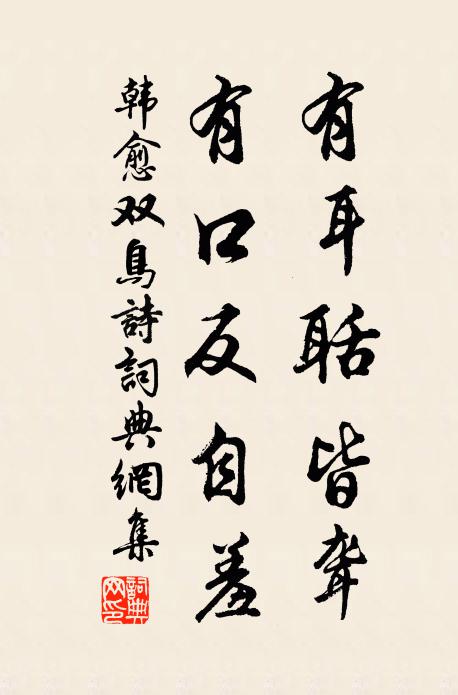 有耳聒皆聋
有口反自羞
韩愈双鸟詩詞典網集
詞典网印